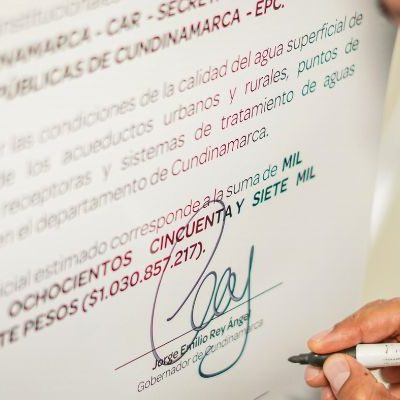 nstitucional
NAMARCA - CAR - SECRET
PÚBLICAS DE CUNDINAMARCA - EPC.
r las condiciones de la calidad del agua superficial de
de los acueductos urbanos y rurales, puntos de
receptoras y sistemas de tratamiento de aguas
en el departamento de Cundinamarca.
icial estimado corresponde a la suma de MIL
OCHOCIENTOS CINCUENTA Y SIETE MIL
TE PESOS ($1.030.857.217).
Jorge Emilio Rey Ángel
Gobernador de Cundinamarca